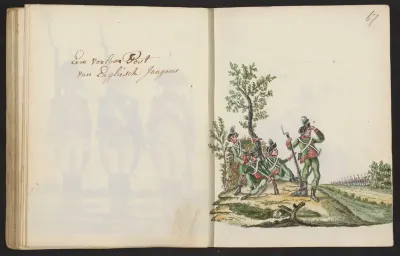 Een voorloor Post
van Englisch Jaagers
67